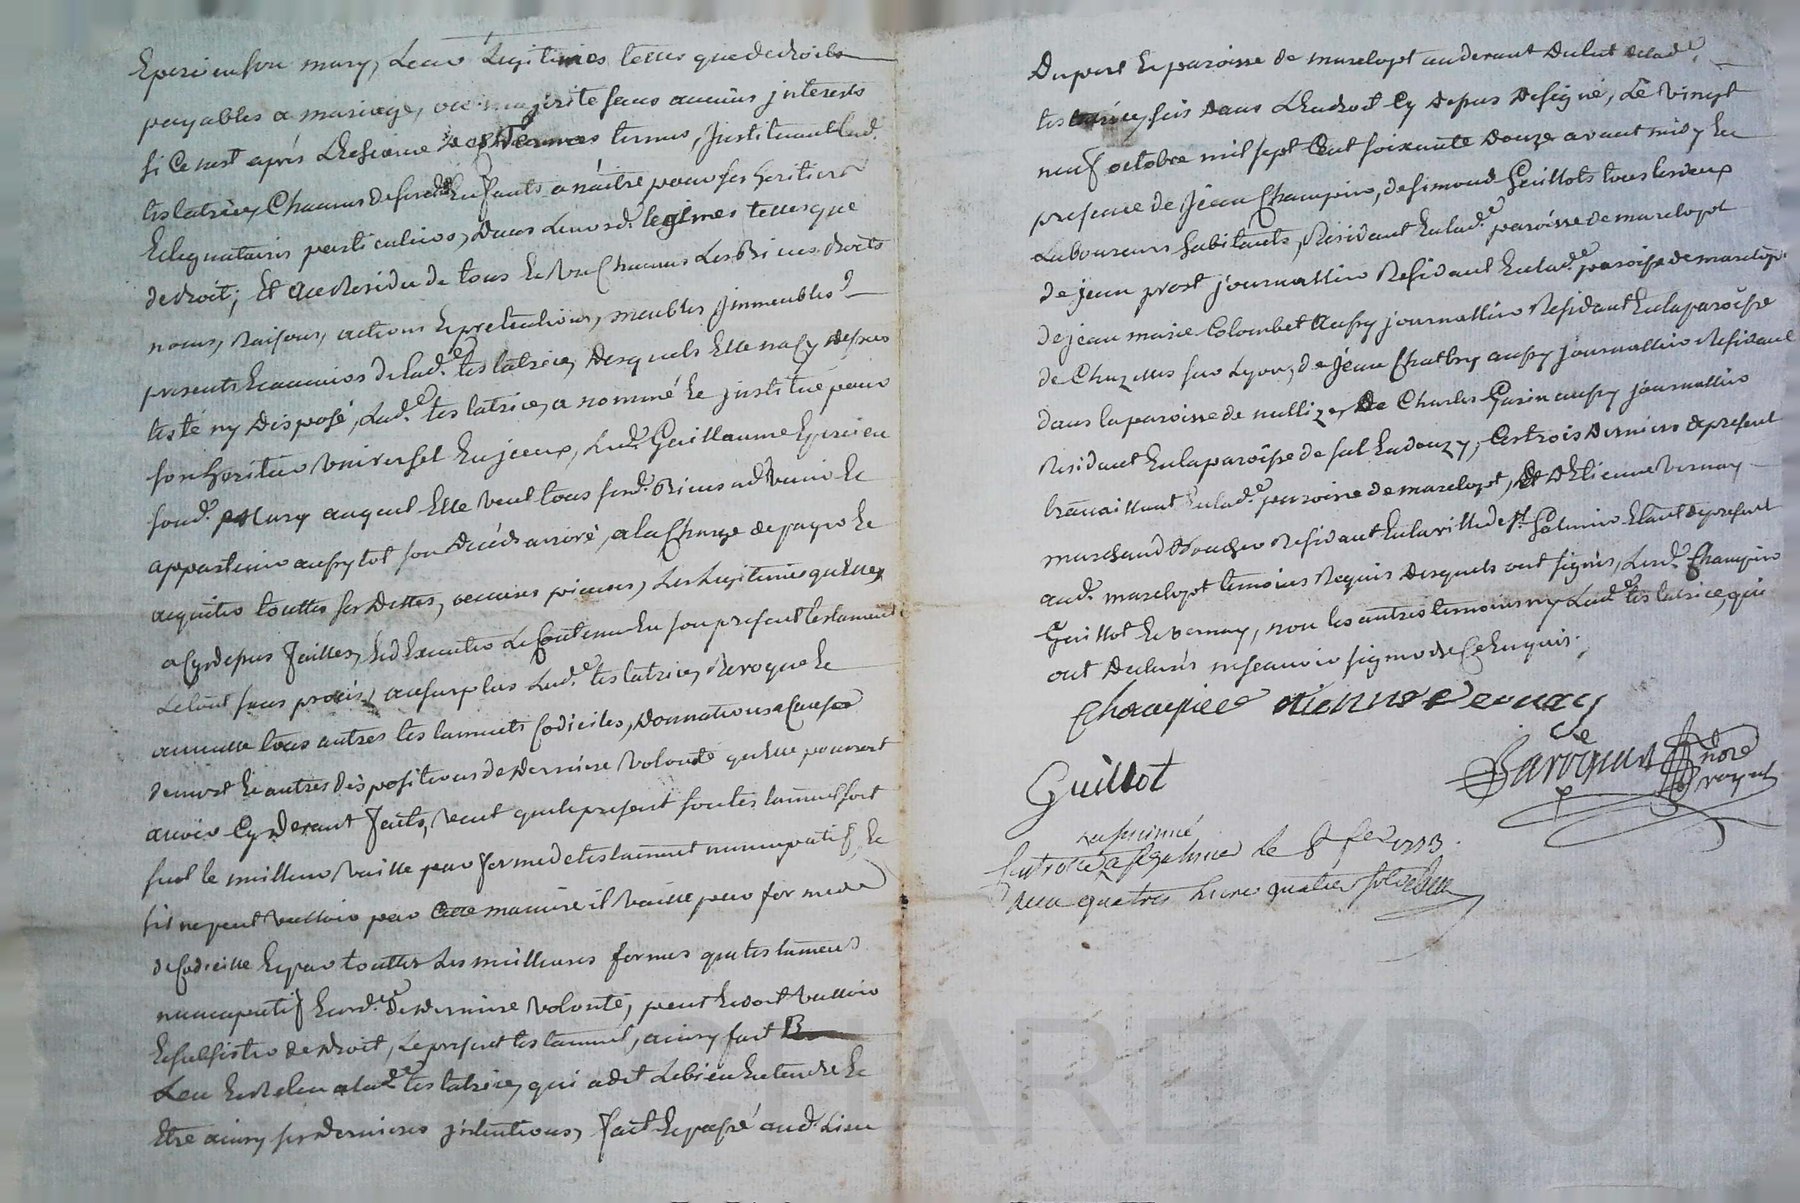 Epercieu son mary, Leurs Legitimes telles que de droits
payables a mariage, ou majorité sans aucuns jnterests
si ce nest aprés Lhecheance termes, Jnstituant lad.
testatrice, Chacuns desd. Enfants a naitre pour ses heritiers
Et legataires particuliers, dans leursd. legimes telles que
de droit; Et au Residu de tous Et Uns Chacuns Les Biens droits
noms, Raisons, actions Et pretentions, meubles Jmmeubles
presents Et advenirs de lad.e testatrice, desquels Elle na Cy dessus
testé ny disposé, Lad.e testatrice, a nommé Et jnstitué pour
son heritier Universel Lud. Guillaume Epercieu
sond. Mary auquel Elle veut tous sesd. Biens advenir Et
appartenir aussytot son décés arrivé, a la Charge de payer Et
aquitter touttes ses Dettes, oeuvres pieuses, Les Legitimes quelle
a Cy depus faittes, Et dexecuter Le Contenu En son present testament
Le tout sans procés, au surplus Lad.e testatrice, Revoque Et
annulle tous autres testaments Codiciles, Donnations a Cause de
de mort Et autres dispositions de derniere volonté quelle pourroit
avoir Cy devant faits, veut que le present son testament soit
seul le meilleur vaille par forme de testament nuncupatif, Et
sil ne peut valloir par Cette maniere il vaille par forme de
de Codicille Et par touttes Les meilleures formes que testament
nuncupatif Et ord.re de derniere volonté, peut Et doit valloir
Et subsister de droit, Le present testament, ainsy fait
Leu Et Releu a lad.e testatrice, qui a dit Le bien Entendre Et
Etre ainsy ses dernieres jntentions, fait Et passé aud. Lieu
Du port Et paroisse de marclopt audevant Dulit de lad.e
testatrice, sis dans Lendroit Cy depus designé, Le vingt
neuf octobre mil sept Cent soixante douze avant midy En
presence de Jean Champier, de simond Guillots tous les deux
Laboureurs habitants, Résidant En lad.e paroisse de marclopt
de jean prost journallier Résidant En lad.e paroisse de marclopt
de jean marie Colombet aussy journallier Résidant En la paroisse
de Chazelles sur Lyon, de Jean Chatby aussy journallier Résidant
dans la paroisse de nullize, De Charles Garin aussy journallier
Résidant En la paroisse de salt En donzy, Ces trois derniers de present
travaillant En lad.e paroisse de marclopt, Et d'Etienne Vernay
marchand Boucher Résidant En la ville de st Galmier Etant de present
aud. marclopt temoins Requis desquels ont signés, Lesd. Champier
Guillot Et vernay, non les autres temoins ny Lad.e testatrice, qui
ont declarés ne scavoir signer de Ce Enquis.
Champier etienne Vernay
Guillot
no.re royal
insinué
Controllé a st galmier le 8 fev 1773.
Reçu quatres Livres quatres sols